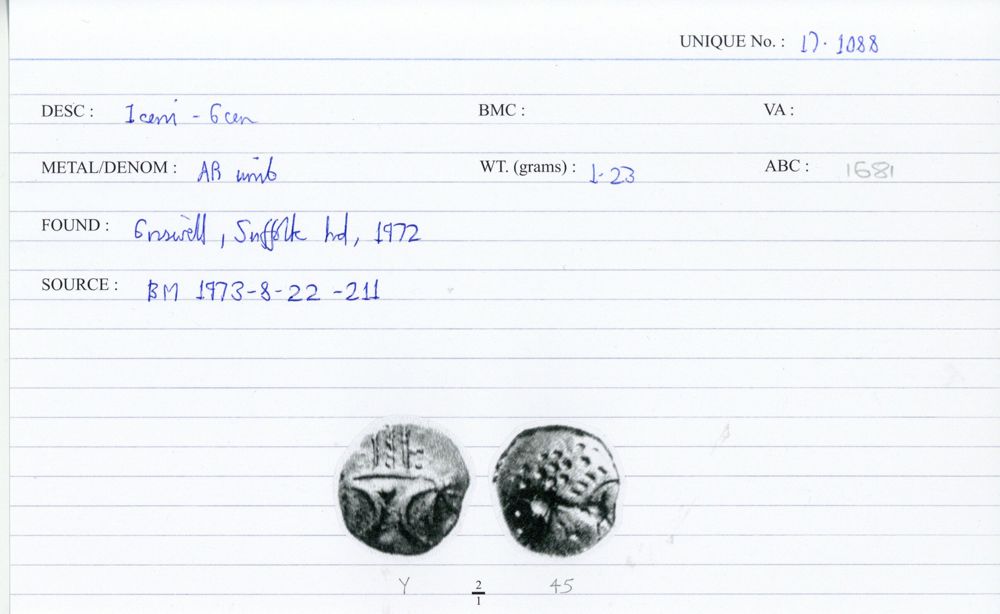 UNIQUE No. : 17. 1088
DESC : Iceni - Ecen BMC : VA :
METAL/DENOM : AR unit WT. (grams) : 1.23 ABC : 1681
FOUND : Eriswell, Suffolk hd, 1972
SOURCE : BM 1973-8-22 -211
Y 2/1 45